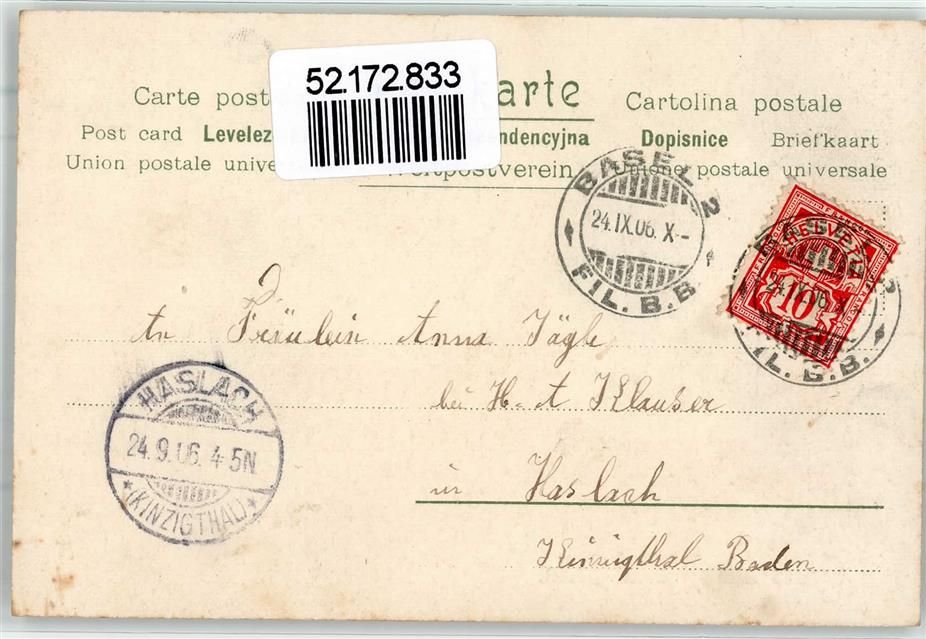 52.172.833
Carte post arte Cartolina postale
Post card Levelez ndencyjna Dopisnice Briefkaart
Union postale unive Weltpostverein Unione postale universale
BASEL 2
24.IX.06. X-
FIL. B.B.
BASEL 2
HELVETIA
10
24.IX.06 X
FIL. B.B.
An Fräulein Anna Jägle
bei H. A Klauser
in Haslach
Kinzigthal Baden
HASLACH
24.9.06. 4-5N.
(KINZIGTHAL)